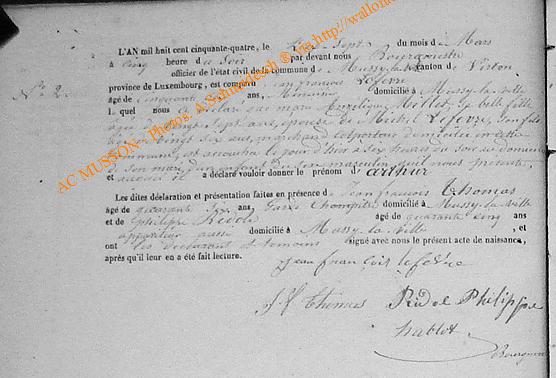 L'AN mil huit cent cinquante-quatre, le Sept du mois de Mars
à cinq heure du Soir par devant nous Bourgmestre
officier de l'état civil de la commune de Mussy-la-Ville canton de Virton
N° 2
province de Luxembourg, est comparu Jean François Lefevre
âgé de cinquante ans, domicilié à Mussy-la-ville
L quel nous a déclaré que marie Angélique Millet, sa belle fille
âgée de vingt Sept ans, épouse de Michel Lefevre, son fils
vingt six ans, marchand colporteur domiciliés en cette
commune, est accouchée le jour d'hier à six heures du soir au domicile
de son mari, d'un enfant du sexe masculin qu'il nous présente,
et auquel il a déclaré vouloir donner le prénom d'arthur
Les dites déclaration et présentation faites en présence de Jean françois Thomas
âgé de quarante ans, Garde Champêtre domicilié à Mussy-la-ville
et de Philippe âgé de quarante cinq ans
appariteur aussi domicilié à Mussy-la-ville, et
ont les déclarant & témoins signé avec nous le présent acte de naissance,
après qu'il leur en a été fait lecture.
Jean françois lefevre
J f Thomas Philippe
hablot
Bourgmestre
AC MUSSON - Photos. A.Schmidt.ch ® via http://wallonie